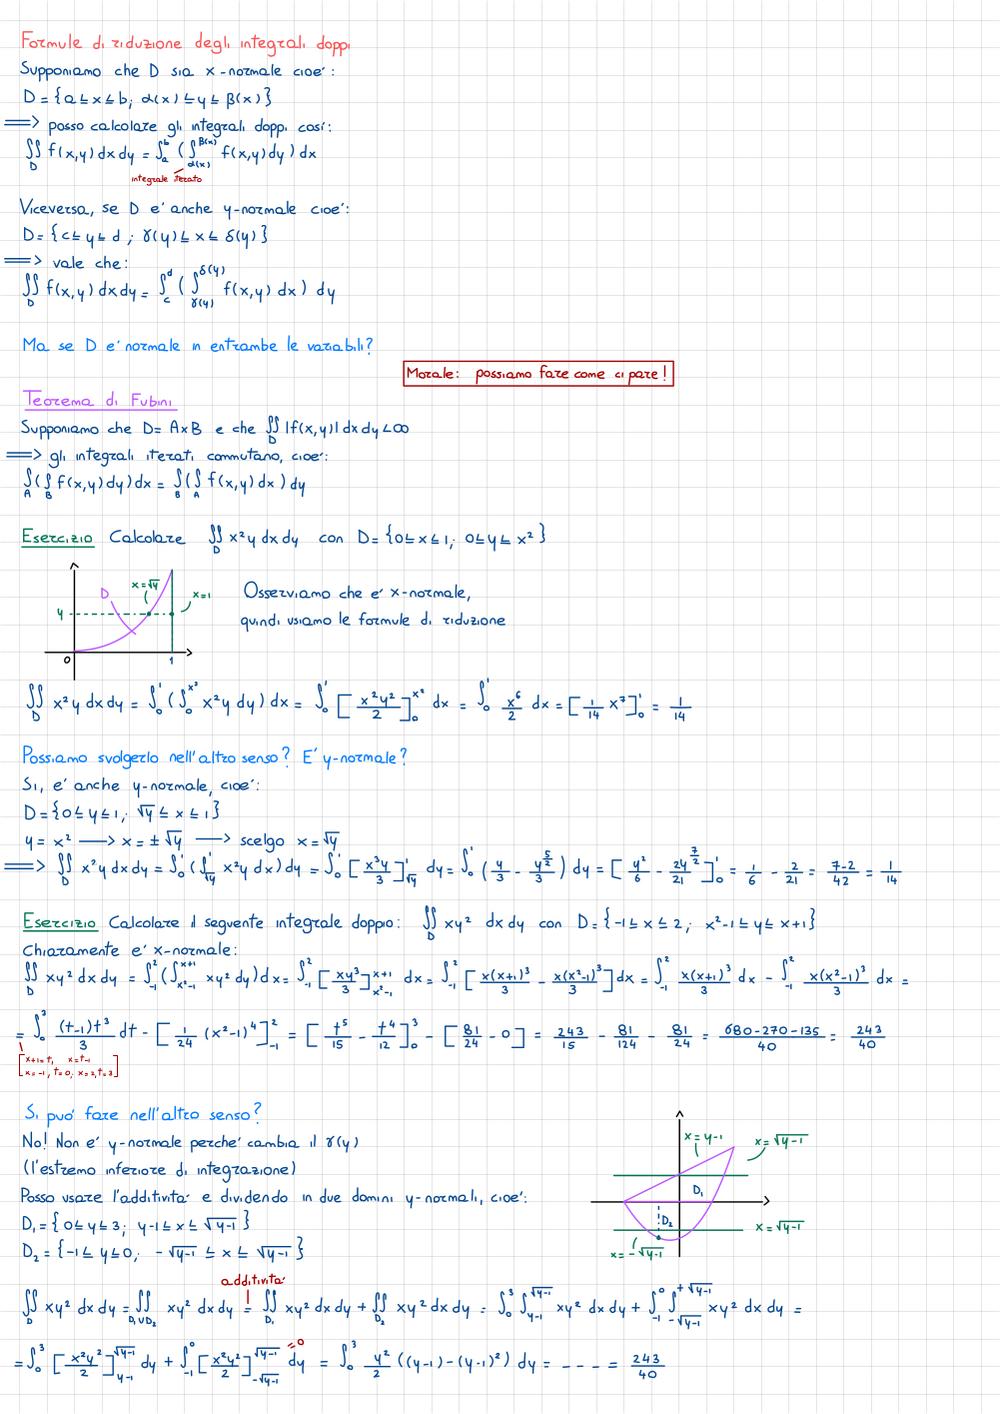 Formule di riduzione degli integrali doppi
Supponiamo che D sia x-normale cioe':
D = {a ≤ x ≤ b; α(x) ≤ y ≤ β(x)}
⟹ posso calcolare gli integrali doppi così:
∬_D f(x,y) dx dy = ∫_a^b (∫_{α(x)}^{β(x)} f(x,y) dy) dx
integrale iterato
Viceversa, se D e' anche y-normale cioe':
D = {c ≤ y ≤ d ; γ(y) ≤ x ≤ δ(y)}
⟹ vale che:
∬_D f(x,y) dx dy = ∫_c^d (∫_{γ(y)}^{δ(y)} f(x,y) dx) dy
Ma se D e' normale in entrambe le variabili?
Morale: possiamo fare come ci pare!
Teorema di Fubini
Supponiamo che D = A×B e che ∬_D |f(x,y)| dx dy < ∞
⟹ gli integrali iterati commutano, cioe':
∫_A (∫_B f(x,y) dy) dx = ∫_B (∫_A f(x,y) dx) dy
Esercizio Calcolare ∬_D x²y dx dy con D = {0 ≤ x ≤ 1; 0 ≤ y ≤ x²}
D x=√y x=1
y
0 1
Osserviamo che e' x-normale,
quindi usiamo le formule di riduzione
∬_D x²y dx dy = ∫_0^1 (∫_0^{x²} x²y dy) dx = ∫_0^1 [x²y²/2]_0^{x²} dx = ∫_0^1 x⁶/2 dx = [1/14 x⁷]_0^1 = 1/14
Possiamo svolgerlo nell'altro senso? E' y-normale?
Si, e' anche y-normale, cioe':
D = {0 ≤ y ≤ 1; √y ≤ x ≤ 1}
y = x² ⟶ x = ± √y ⟶ scelgo x = √y
⟹ ∬_D x²y dx dy = ∫_0^1 (∫_{√y}^1 x²y dx) dy = ∫_0^1 [x³y/3]_{√y}^1 dy = ∫_0^1 (y/3 - y^{5/2}/3) dy = [y²/6 - 2y^{7/2}/21]_0^1 = 1/6 - 2/21 = 7-2/42 = 1/14
Esercizio Calcolare il seguente integrale doppio: ∬_D xy² dx dy con D = {-1 ≤ x ≤ 2; x²-1 ≤ y ≤ x+1}
Chiaramente e' x-normale:
∬_D xy² dx dy = ∫_{-1}^2 (∫_{x²-1}^{x+1} xy² dy) dx = ∫_{-1}^2 [xy³/3]_{x²-1}^{x+1} dx = ∫_{-1}^2 [x(x+1)³/3 - x(x²-1)³/3] dx = ∫_{-1}^2 x(x+1)³/3 dx - ∫_{-1}^2 x(x²-1)³/3 dx =
= ∫_0^3 (t-1)t³/3 dt - [1/24 (x²-1)⁴]_{-1}^2 = [t⁵/15 - t⁴/12]_0^3 - [81/24 - 0] = 243/15 - 81/124 - 81/24 = 680-270-135/40 = 243/40
[x+1=t, x=t-1
x=-1, t=0; x=2, t=3]
Si puo' fare nell'altro senso?
No! Non e' y-normale perche' cambia il γ(y)
(l'estremo inferiore di integrazione)
Posso usare l'additivita' e dividendo in due domini y-normali, cioe':
D₁ = {0 ≤ y ≤ 3; y-1 ≤ x ≤ √y-1}
D₂ = {-1 ≤ y ≤ 0; -√y-1 ≤ x ≤ √y-1}
x=y-1 x=√y-1
D₁
D₂ x=√y-1
x=-√y-1
additivita'
∬_D xy² dx dy = ∬_{D₁∪D₂} xy² dx dy = ∬_{D₁} xy² dx dy + ∬_{D₂} xy² dx dy = ∫_0^3 ∫_{y-1}^{√y-1} xy² dx dy + ∫_{-1}^0 ∫_{-√y-1}^{+√y-1} xy² dx dy =
=0
= ∫_0^3 [x²y²/2]_{y-1}^{√y-1} dy + ∫_{-1}^0 [x²y²/2]_{-√y-1}^{√y-1} dy = ∫_0^3 y²/2 ((y-1)-(y-1)²) dy = ---- = 243/40